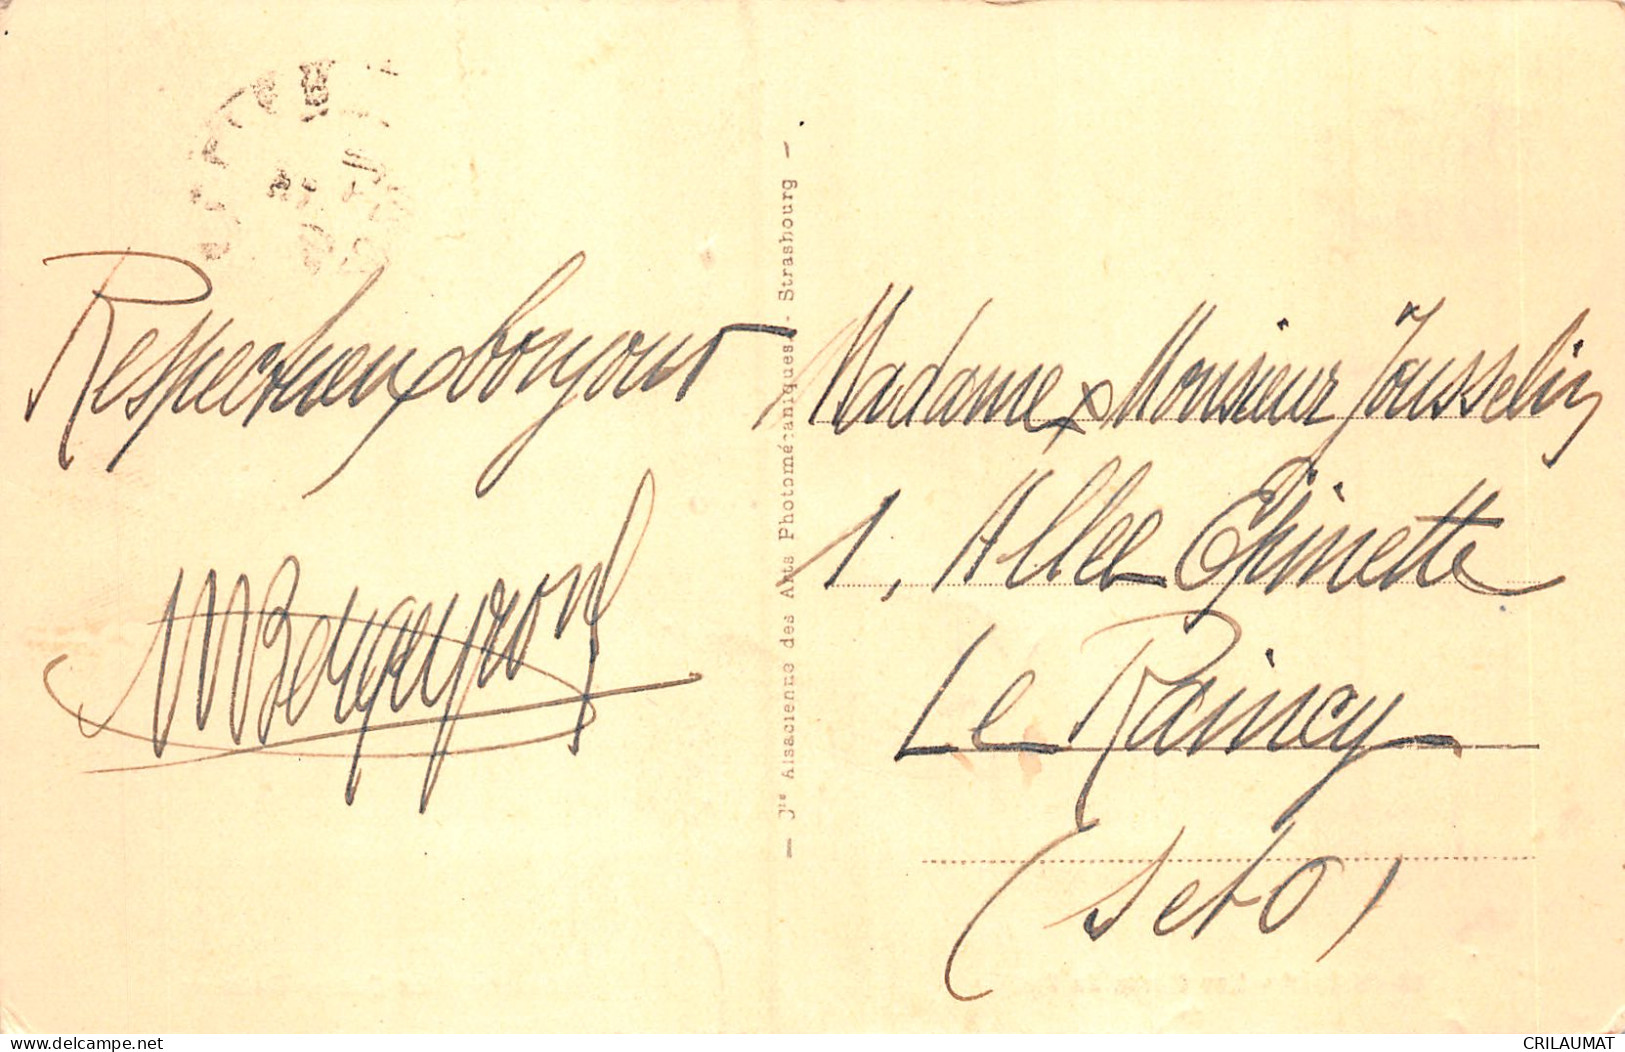 Respectueux bonjour
— Cie Alsacienne des Arts Photomécaniques - Strasbourg —
Madame & Monsieur Jousselin
1, Allee Epinette
Le Raincy
(S et O)
delcampe.net
CRILAUMAT